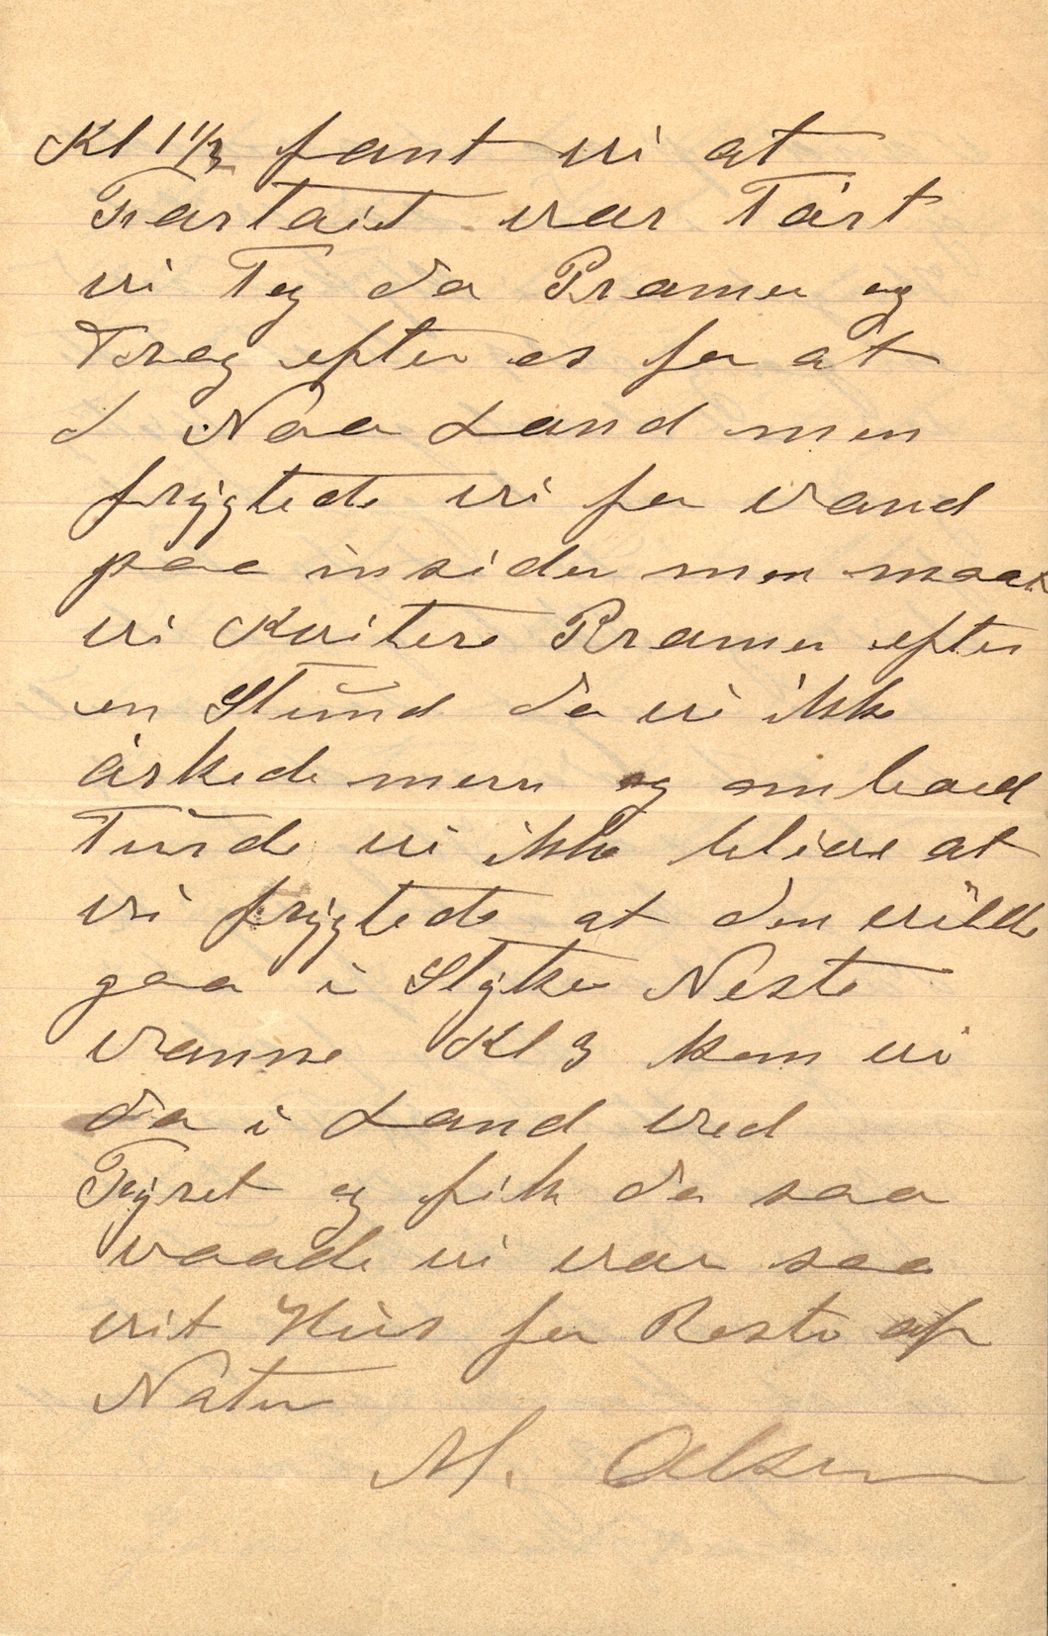 Kl 1 1/2 fant vi at
Fartøiet var Tørt
vi Tog da Pramen og
Drog efter os for at
Naa Land men
frygtede vi for vand
paa insiden men maat
vi Kvitere Pramen efter
en Stund da vi ikke
årkede mern og ombord
Turde vi ikke blive at
vi frygtede at den vilde
gaa i Styker Neste
vanne Kl 3 kom vi
da i Land ved
Fyret og fik da saa
vaade vi var saa
vit Hus for Resten af
Naten
M. Olsen